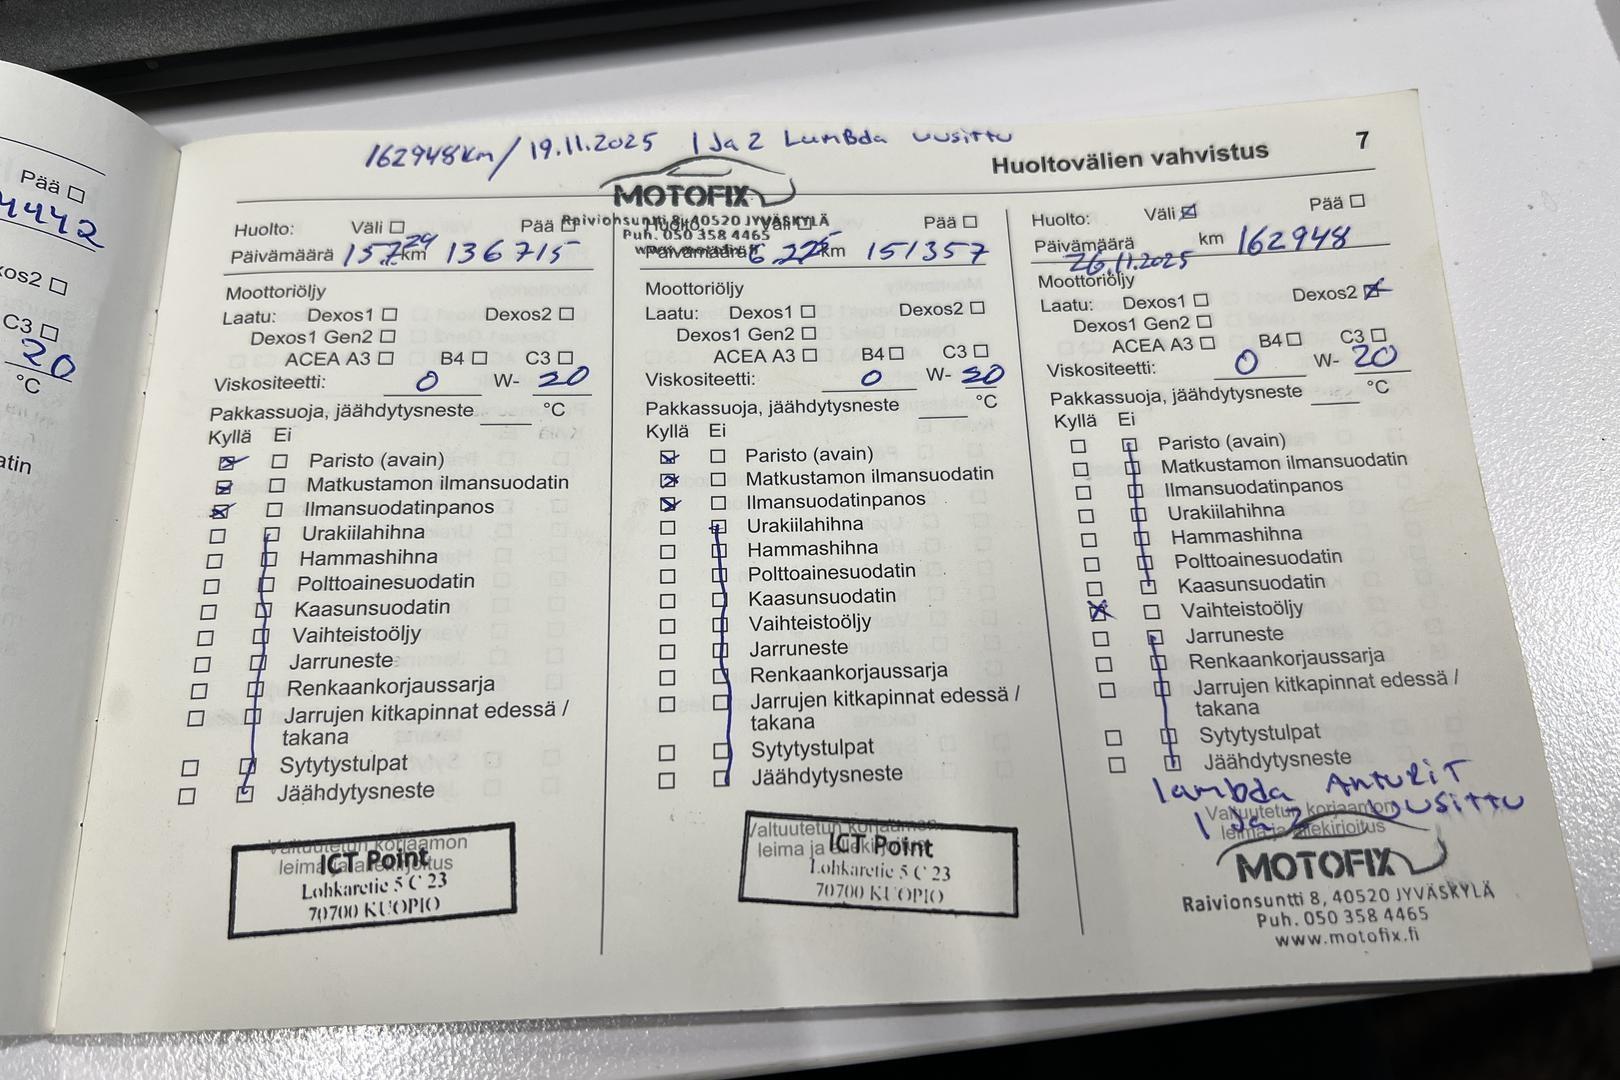 162948km / 19.11.2025 1 Ja 2 LamBda uusittu
MOTOFIX
Raivionsuntti 8, 40520 JYVÄSKYLÄ
Puh. 050 358 4465
Huoltovälien vahvistus 7
Pää
4442
xos2
C3
20
°C
atin
Huolto: Väli Pää
Päivämäärä km 136715
Moottoriöljy
Laatu: Dexos1 Dexos2
Dexos1 Gen2
ACEA A3 B4 C3
Viskositeetti: 0 W- 20
Pakkassuoja, jäähdytysneste °C
Kyllä Ei
Paristo (avain)
Matkustamon ilmansuodatin
Ilmansuodatinpanos
Urakiilahihna
Hammashihna
Polttoainesuodatin
Kaasunsuodatin
Vaihteistoöljy
Jarruneste
Renkaankorjaussarja
Jarrujen kitkapinnat edessä /
takana
Sytytystulpat
Jäähdytysneste
Valtuutetun korjaamon
leima ja allekirjoitus
ICT Point
Lohkaretie 5 C 23
70700 KUOPIO
Huolto: Väli Pää
Päivämäärä km 151357
Moottoriöljy
Laatu: Dexos1 Dexos2
Dexos1 Gen2
ACEA A3 B4 C3
Viskositeetti: 0 W- 20
Pakkassuoja, jäähdytysneste °C
Kyllä Ei
Paristo (avain)
Matkustamon ilmansuodatin
Ilmansuodatinpanos
Urakiilahihna
Hammashihna
Polttoainesuodatin
Kaasunsuodatin
Vaihteistoöljy
Jarruneste
Renkaankorjaussarja
Jarrujen kitkapinnat edessä /
takana
Sytytystulpat
Jäähdytysneste
Valtuutetun korjaamon
leima ja allekirjoitus
ICT Point
Lohkaretie 5 C 23
70700 KUOPIO
Huolto: Väli Pää
Päivämäärä km 162948
26.11.2025
Moottoriöljy
Laatu: Dexos1 Dexos2
Dexos1 Gen2
ACEA A3 B4 C3
Viskositeetti: 0 W- 20
Pakkassuoja, jäähdytysneste °C
Kyllä Ei
Paristo (avain)
Matkustamon ilmansuodatin
Ilmansuodatinpanos
Urakiilahihna
Hammashihna
Polttoainesuodatin
Kaasunsuodatin
Vaihteistoöljy
Jarruneste
Renkaankorjaussarja
Jarrujen kitkapinnat edessä /
takana
Sytytystulpat
Jäähdytysneste
lambda Anturit
1 Ja 2 uusittu
Valtuutetun korjaamon
leima ja allekirjoitus
MOTOFIX
Raivionsuntti 8, 40520 JYVÄSKYLÄ
Puh. 050 358 4465
www.motofix.fi